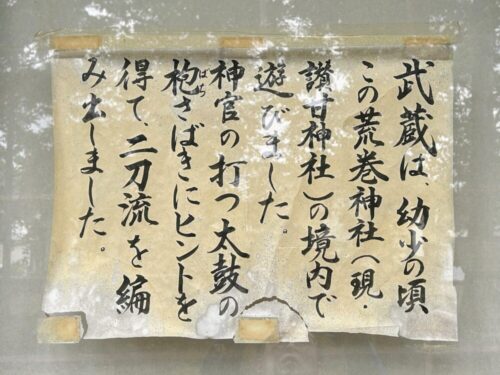 武蔵は、幼少の頃
この荒巻神社(現・
讃甘神社)の境内で
遊びました。
神官の打つ太鼓の
枹さばきにヒントを
得て、二刀流を編
み出しました。
ばち